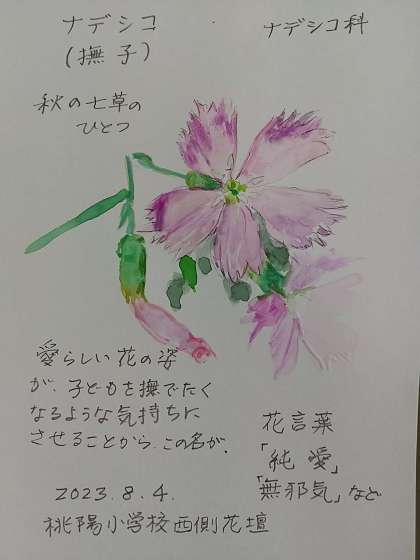 ナデシコ
(撫子)
ナデシコ科
秋の七草の
ひとつ
愛らしい花の姿
が、子どもを撫でたく
なるような気持ちに
させることから、この名が。
花言葉
「純愛」
「無邪気」など
2023.8.4.
桃陽小学校西側花壇